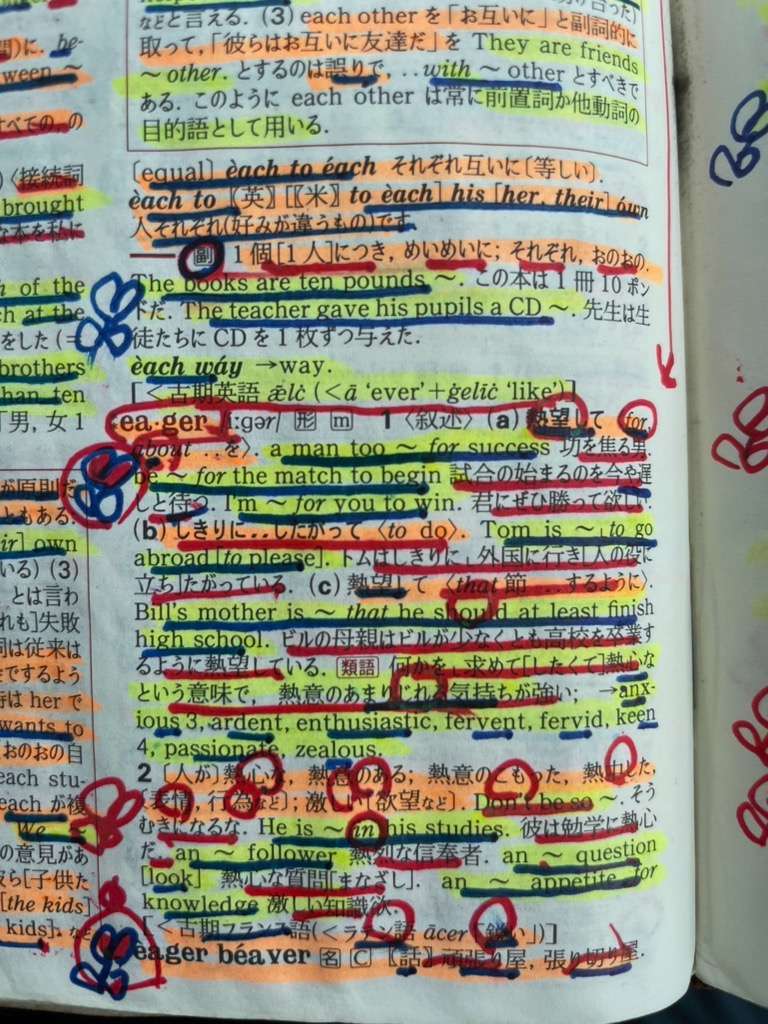 などと言える. (3) each other を「お互いに」と副詞的に
取って,「彼らはお互いに友達だ」を They are friends
～ other. とするのは誤りで, ‥with ～ other とすべきで
ある. このように each other は常に前置詞か他動詞の
目的語として用いる.
〔equal〕 èach to éach それぞれ互いに〔等しい〕.
èach to 〖英〗[〖米〗to èach] his [her, their] ówn
人それぞれ(好みが違うもの)です
── 副 1 個[1 人]につき, めいめいに; それぞれ, おのおの.
The books are ten pounds ～. この本は 1 冊 10 ポン
ドだ. The teacher gave his pupils a CD ～. 先生は生
徒たちに CD を 1 枚ずつ与えた.
èach wáy →way.
[<古期英語 ǣlċ (<ā 'ever'+ġelīċ 'like')]
ea·ger /íːgər/ 形 m 1 〈叙述〉 (a) 熱望して 〈for,
about ‥を〉. a man too ～ for success 功を焦る男.
be ～ for the match to begin 試合の始まるのを今や遅
しと待つ. I'm ～ for you to win. 君にぜひ勝って欲しい.
(b) しきりに‥したがって 〈to do〉. Tom is ～ to go
abroad [to please]. トムはしきりに[外国に行き[人の役に
立ち]たがっている. (c) 熱望して 〈that 節 ‥するように〉.
Bill's mother is ～ that he should at least finish
high school. ビルの母親はビルが少なくとも高校を卒業す
るように熱望している. 類語 何かを[求めて[したくて]熱心な
という意味で, 熱意のあまりじれる気持ちが強い; →anx-
ious 3, ardent, enthusiastic, fervent, fervid, keen
4, passionate, zealous.
2 〔人が〕熱心な, 熱意のある; 熱意のこもった, 熱中した,
〔表情, 行為など〕; 激しい〔欲望など〕. Don't be so ～. そう
むきになるな. He is ～ in his studies. 彼は勉学に熱心
だ. an ～ follower 熱烈な信奉者. an ～ question
[look] 熱心な質問[まなざし]. an ～ appetite for
knowledge 激しい知識欲.
[<古期フランス語(<ラテン語 ācer「鋭い」)]
eager béaver 名 C 〖話〗頑張り屋, 張り切り屋.